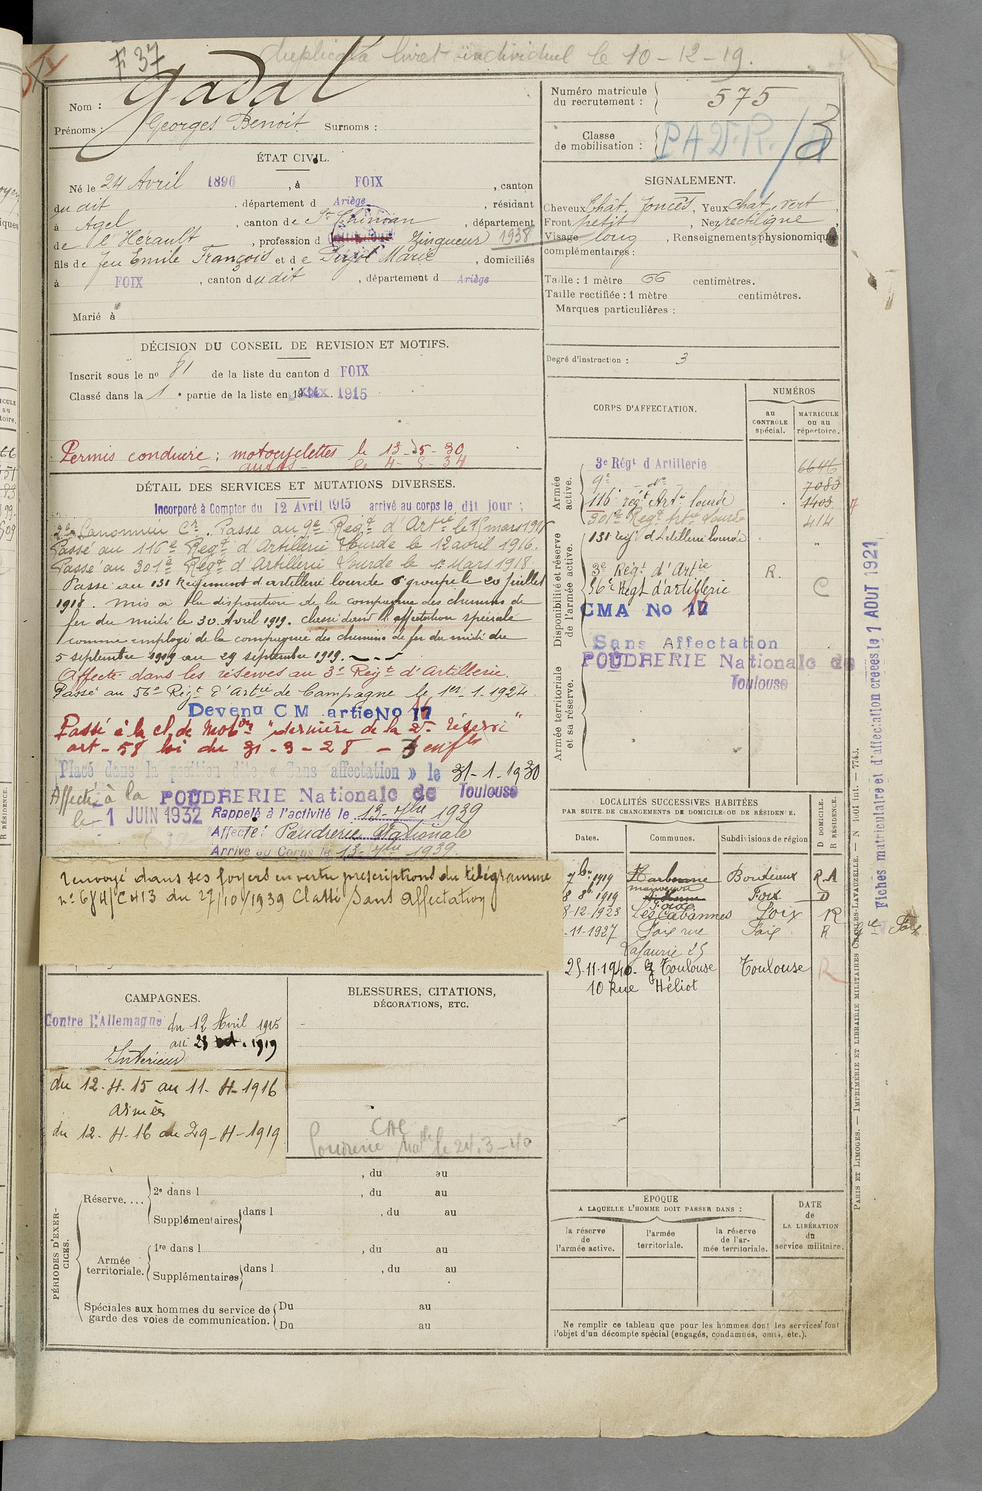 F 37
duplicata livret individuel le 10-12-19.
Nom : Gadal
Prénoms : Georges Benoit Surnoms :
Numéro matricule du recrutement : 575
Classe de mobilisation :
ÉTAT CIVIL.
Né le 24 Avril 1896, à FOIX, canton
du dit, département d Ariège, résidant
à Agel, canton de St Chinian, département
de l'Hérault, profession d Zingueur 1938
fils de feu Emile François et de Marie, domiciliés
à FOIX, canton dudit, département d Ariège
Marié à
SIGNALEMENT.
Cheveux Chât. foncés, Yeux Chat. vert
Front petit, Nez rectiligne
Visage long, Renseignements physionomiques
complémentaires :
Taille : 1 mètre 66 centimètres.
Taille rectifiée : 1 mètre centimètres.
Marques particulières :
Degré d'instruction : 3
DÉCISION DU CONSEIL DE REVISION ET MOTIFS.
Inscrit sous le no 81 de la liste du canton d FOIX
Classé dans la 1 e partie de la liste en 1915
Permis conduire : motocyclettes le 13-5-30
autos le 4-5-34
DÉTAIL DES SERVICES ET MUTATIONS DIVERSES.
Incorporé à Compter du 12 Avril 1915 arrivé au corps le dit jour ;
2e Canonnier Cr. Passé au 9e Régt d'Artie le
Passé au 116e Régt d'Artillerie Lourde le 12 avril 1916.
Passé au 301e Régt d'Artillerie Lourde le 1er Mars 1918
Passé au 131 Régiment d'artillerie lourde 6 groupe le 20 juillet
1918. Mis à la disposition de la compagnie des chemins de
fer du midi le 30 Avril 1919. classé dans l'affectation spéciale
comme employé de la compagnie des chemins de fer du midi du
5 septembre 1919 au 29 septembre 1919.
Affecté dans les réserves au 3e Régt d'Artillerie.
Passé au 56e Régt d'Artie de Campagne le 1er.1.1924
Devenu C M artie No 17
Passé à la cl. de mobon "dernière de la 2e réserve"
art-58 loi du 31-3-28 - 3 enfts
Placé dans la position dite « Sans affectation » le 31-1-1930
Affecté à la POUDRERIE Nationale de Toulouse
le 1 JUIN 1932 Rappelé à l'activité le 13 7bre 1939
Affecté : Poudrerie Nationale
Arrivé au Corps le 13 7bre 1939
renvoyé dans ses foyers en vertu prescriptions du télégramme
no 684/C 413 du 27/10/1939 Classé "Sans affectation"
CORPS D'AFFECTATION.
NUMÉROS
au CONTRÔLE spécial.
MATRICULE ou au répertoire.
Armée active.
3e Régt d'Artillerie 6646
9e - do - 7083
116 régt Artie lourde 1403
301e Régt Artie lourde 414
Disponibilité et réserve de l'armée active.
131 régt d'Artillerie lourde
3e Régt d'Artie R.
56e Régt d'artillerie C
CMA No 17
Sans Affectation
POUDRERIE Nationale de
Toulouse
Armée territoriale et sa réserve.
LOCALITÉS SUCCESSIVES HABITÉES
PAR SUITE DE CHANGEMENTS DE DOMICILE OU DE RÉSIDENCE.
Dates. Communes. Subdivisions de région
D DOMICILE. R RÉSIDENCE.
7 bre 1919 Narbonne Bordeaux R.A
8 8bre 1919 Foix D
8-12-1923 Les Cabannes Foix R
-11-1927 Foix rue Foix R
Lafaurie 25
25.11.1940 Toulouse Toulouse R
10 Rue Héliot
CAMPAGNES.
Contre l'Allemagne du 12 Avril 1915
au 1919
Intérieur
du 12.4.15 au 11.4.1916
armées
du 12.4.16 au 29-4-1919
BLESSURES, CITATIONS,
DÉCORATIONS, ETC.
CAC
Poudrerie Natle le 24.3-40
PÉRIODES D'EXERCICES.
Réserve....
2e dans l , du au
, du au
Supplémentaires dans l , du au
Armée territoriale.
1re dans l , du au
Supplémentaires dans l , du au
Spéciales aux hommes du service de garde des voies de communication.
Du au
Du au
ÉPOQUE
A LAQUELLE L'HOMME DOIT PASSER DANS :
la réserve de l'armée active.
l'armée territoriale.
la réserve de l'armée territoriale.
DATE de LA LIBÉRATION du service militaire.
Ne remplir ce tableau que pour les hommes dont les services font
l'objet d'un décompte spécial (engagés, condamnés, omis, etc.).
PARIS ET LIMOGES. — IMPRIMERIE ET LIBRAIRIE MILITAIRES CHARLES-LAVAUZELLE. — N° 1001 int. — 7743.
Fiches matriculaire et d'affectation créées le 1 AOUT 1921